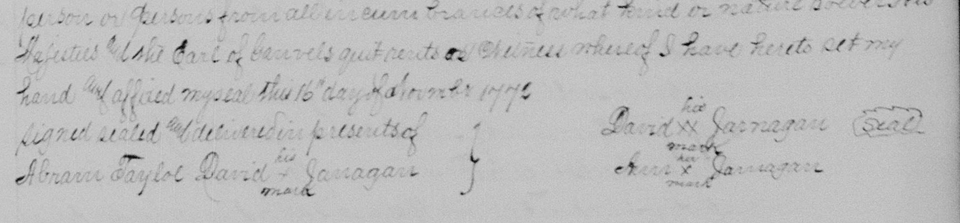 person or persons from all incumbrances of what kind or nature soever his
Majesties and the Earl of Granvels quit rents as Witness whereof I have hereto set my
hand and affixed my seal this 16th day of Novmbr 1772
signed sealed and delivered in presents of } David his XX mark Jarnagan (Seal)
Abram Taylol David his x mark Janagan Ann her x mark Jarnagan